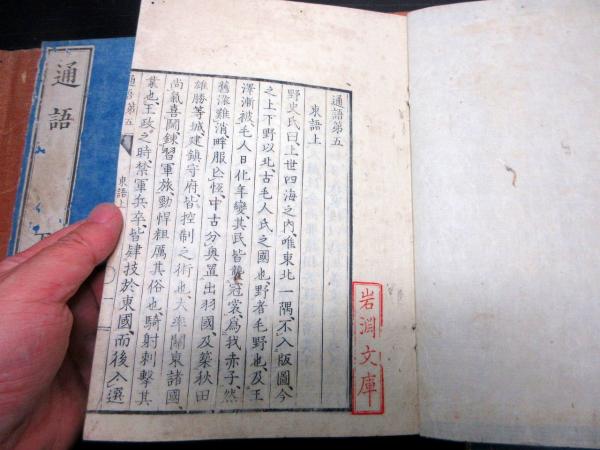 岩淵文庫
通語第五
東語上
野史氏曰、上世四海之內、唯東北一隅、不入版圖、今
之上下野以北、古毛人氏之國也、野者毛野也、及王
澤漸被、毛人日化年變、其民皆襲冠裳、爲我赤子、然
舊染難消、畔服叵恆、中古分奧置出羽國、及築秋田
雄勝等城、建鎮守府、皆控制之術也、大率關東諸國、
尚氣喜鬪、鍊習軍旅、勁悍粗厲其俗也、騎射刺擊其
業也、王政之時、禁軍兵卒、皆肆技於東國、而後入選
通語第五
東語上
通語